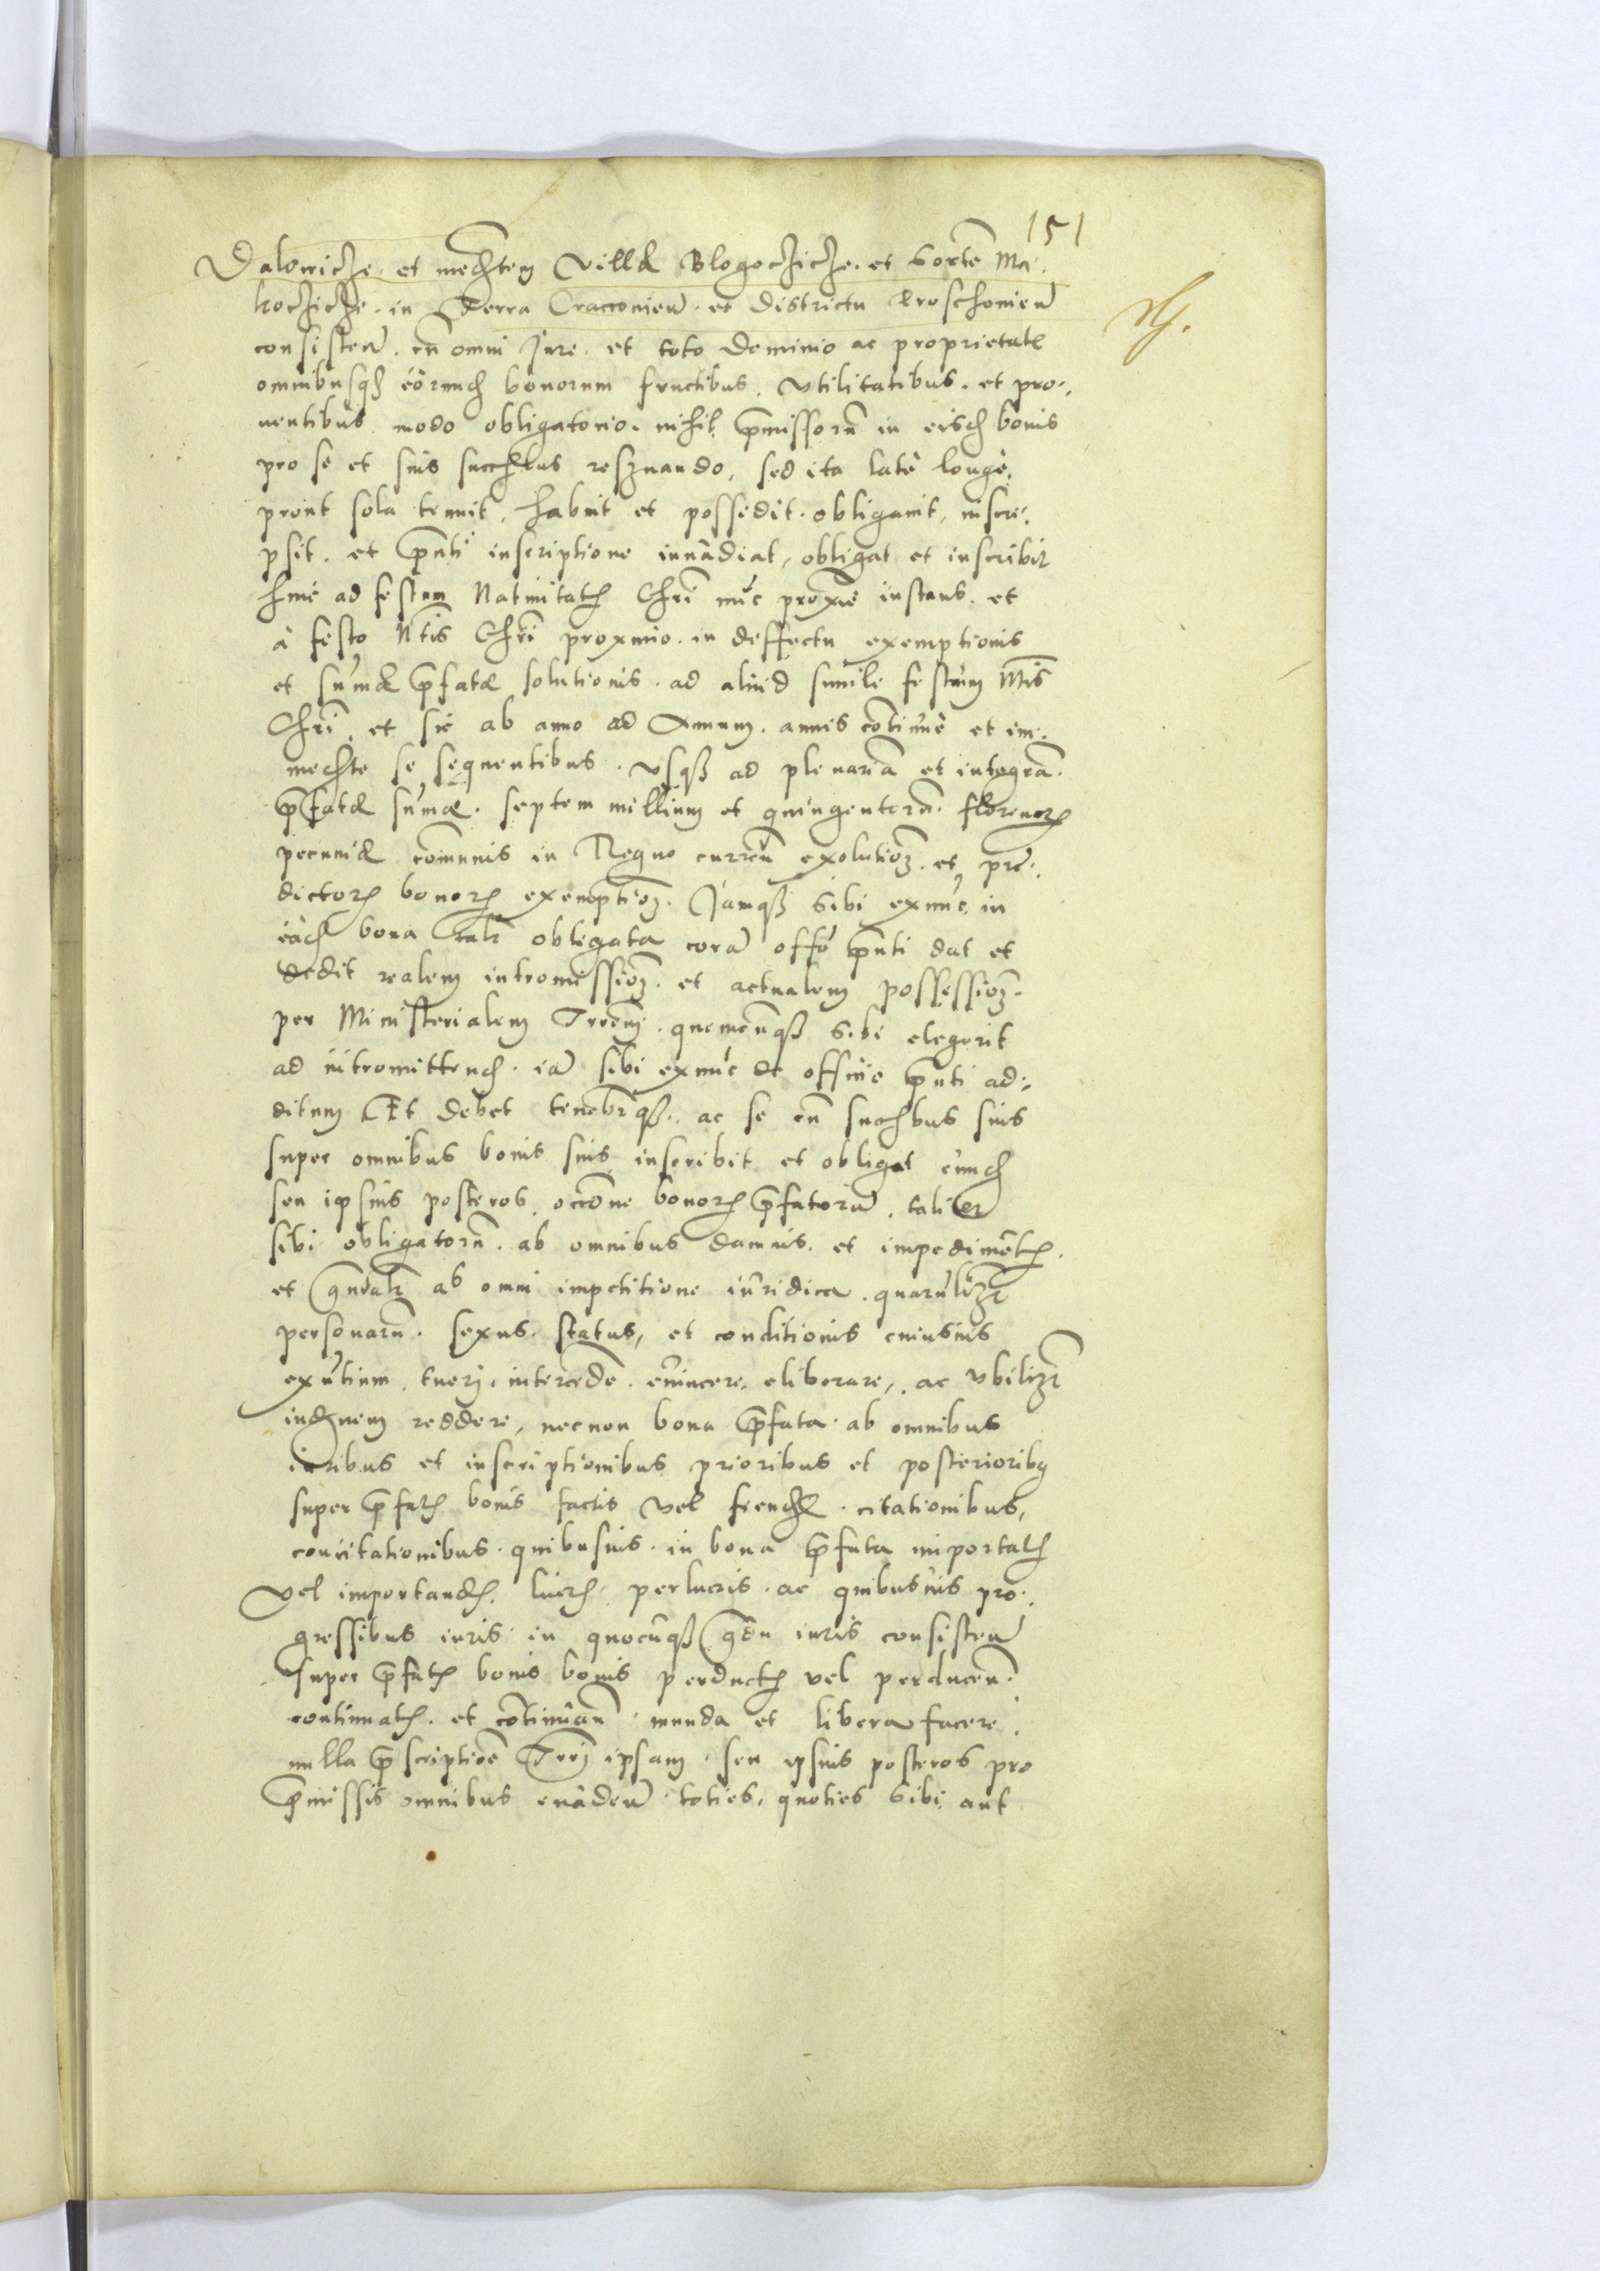 151
Dalowicze et medietatem Villæ Blogoczicze et sortem Ma-
koczicze in Terra Cracovien et districtu Proschovien
consisten cum omni Jure et toto dominio ac proprietate
omnibusque eorund bonorum fructibus, Vtilitatibus et pro-
uentibus modo obligatorio. nihil præmissorum in eisd bonis
pro se et suis succbus reszuando, sed ita latè longè
prout sola tenuit, habuit et possedit obligauit, inscri-
psit. et pnti inscriptione inuadiat, obligat et inscribit
hinc ad festum Natiuitatis Chri nūc proxie instans et
à festo Ntis Chri proximo in deffectu exemptionis
et sūmæ pfatæ solutionis ad aliud simile festum Ntis
Chri et sic ab anno ad Annum annis cōtinuè et im-
mediate se sequentibus vsque ad plenariā et integrā
pfatæ sūmæ septem millium et quingentorū florenorum
pecuniæ cōmunis in Regno curren exolution et præ-
dictorum bonorum exemption Jamque sibi exnūc in
ead bona talr obligata corā offo pnti dat et
dedit realem intromission et actualem possession
per Ministerialem Trrem quemcunque sibi elegerit
ad intromittend iam sibi exnūc de officio pnti ad-
ditum Et debet tenebrque ac se cū succbus suis
super omnibus bonis suis inscribit et obligat eund
seu ipsius posteros occōne bonorum pfatorum taliter
sibi obligatorū ab omnibus damnis et impedimētis
et gnralr ab omni impetitione iuridica quarūlibet
personarū sexus status, et conditionis cuiusuis
exūtium tueri intercede euincere eliberare, ac Vbilibet
indemnem reddere, necnon bona pfata ab omnibus
iuribus et inscriptionibus prioribus et posterioribus
super pfatis bonis factis vel fiend citationibus,
concitationibus quibusuis in bona pfata importatis
vel importandis lucris perlucris ac quibusuis pro-
gressibus iuris in quocūque gdu iuris consisten
super pfatis bonis bonis perductis vel perducen
continuatis et cōtinuan munda et libera facere
nulla pscriptiōe Trri ipsam seu ipsius posteros pro
pmissis omnibus euaden toties, quoties sibi aut